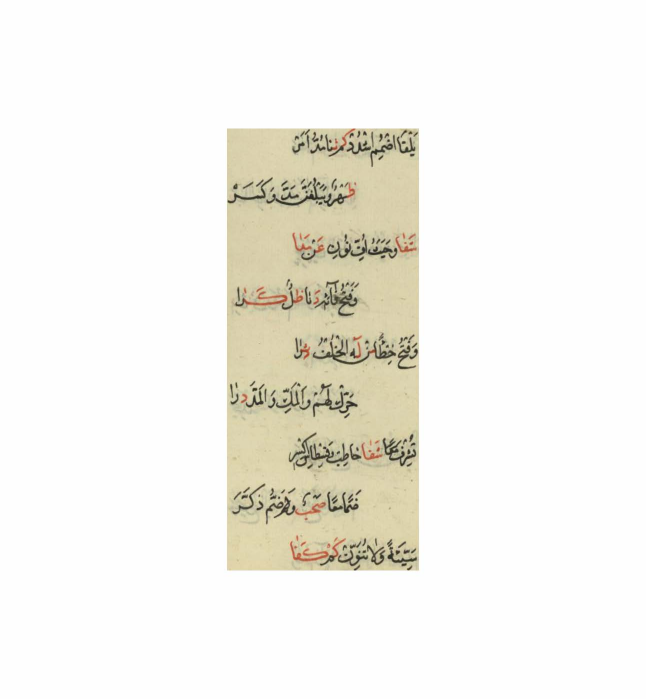 يَلْقَا اضْمُمِ اشْدُدْ كَمْ ثنا مَدَّ أَمَرْ
ظَهْرٌ وَيَبْلُغَنَّ مَدَّ وَكَسَرْ
شَفَا وَحَيْثُ أُفِّ نُونِ عَنْ مَدَا
وَفَتْحُ فَائِهِ دَنَا ظِلٌّ كَدَا
وَفَتْحُ خِطْأً مَنْ لَهُ الْخُلْفُ ثرا
حَرِّكْ لَهُمْ وَالْمَكِّ وَالْمَدَّ دَرَا
شَفَا خَاطِبْ
ضَمًّا مَعًا صَحْبُ وَضُمَّ ذَكَّرَ
سَيِّئَةً وَلَا تُنَوِّنْ كَمْ كَفَا